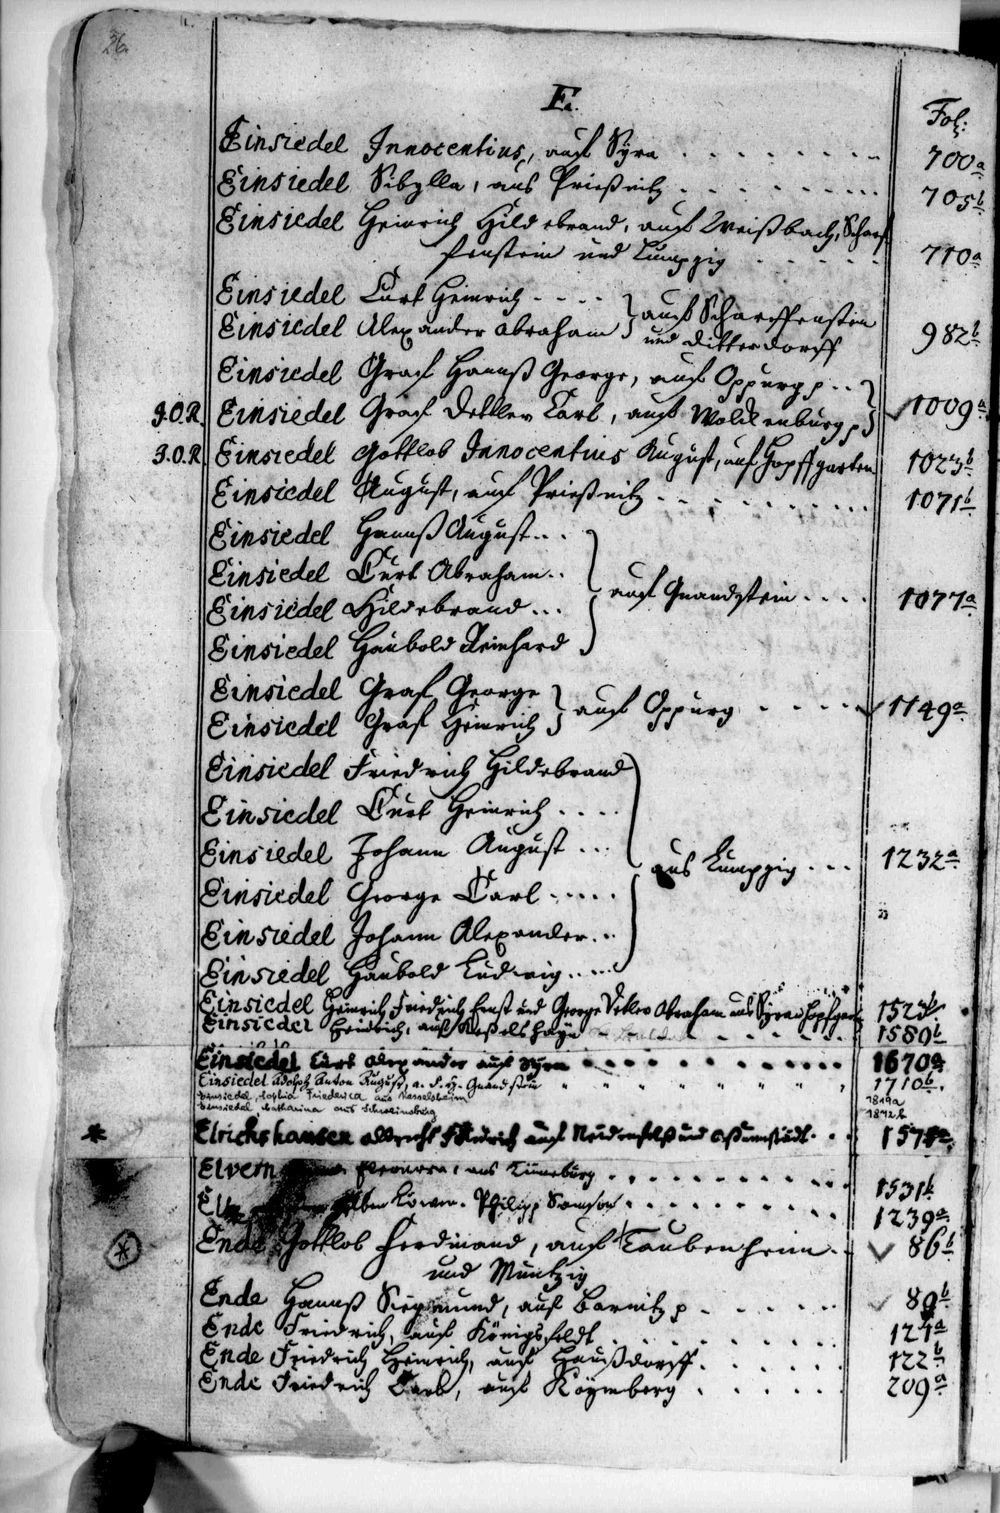 26.
E.
Fol:
Einsiedel Innocentius, auf Syra . . . . . . . . 700a
Einsiedel Sibylla, aus Prießnitz . . . . . . . . 705b
Einsiedel Heinrich Hildebrand, auf Weißbach, Scharf-
fenstein und Lumpzig . . . . . . 710a
Einsiedel Curt Heinrich . . . . } auf Scharffenstein
Einsiedel Alexander Abraham } und Dittersdorff 982b
Einsiedel Graf Hannß George, auf Oppurg p . . }
J.O.R. Einsiedel Graf Dettlev Carl, auf Wolckenburg p } 1009a
J.O.R. Einsiedel Gottlob Innocentius August, auf Hopffgarten 1023b
Einsiedel August, auf Prießnitz . . . . . . . . . 1071b
Einsiedel Hannß August . . .
Einsiedel Curt Abraham . .
Einsiedel Hildebrand . . . } auf Gnandstein . . . . 1077a
Einsiedel Haubold Reinhard
Einsiedel Graf George
Einsiedel Graf Heinrich } auf Oppurg . . . . . 1149a
Einsiedel Friedrich Hildebrand
Einsiedel Curt Heinrich . . . .
Einsiedel Johann August . . .
} aus Lumpzig . . . 1232a
Einsiedel George Carl . . . . .
Einsiedel Johann Alexander . .
Einsiedel Haubold Ludwig . . . .
Einsiedel Heinrich Friedrich Ernst und George Detlev Abraham aus Syra u. Hopfgarten 1523b
Einsiedel Heinrich, auf 1589b
Einsiedel Curt Alexander auf Syra . . . . . . . . 1670a
Einsiedel Adolph Anton August, a. d. H. Gnandstein 1710b.
Einsiedel, Sophia Friederica aus 1819a
Einsiedel Catharina aus Schweinsburg 1872b
* Elrichshausen Albrecht Friedrich auf Neidenfelß und Aßumstädt . . 1571a
Elvern Eleonora, aus Lüneburg . . . . . . . . 1531b
Philipp Samson . . . . . . . . 1239a
* Ende Gottlob Ferdinand, auf Taubenheim . . 86b
und Müntzig
Ende Hannß Siegmund, auf Barnitz p . . . . . 89b
Ende Friedrich, auf Königsfeldt . . . . . . . . 121a
Ende Friedrich Heinrich, auf Haußdorff . . . . . . 122b
Ende Friedrich Carl, auf Kaymberg . . . . . . 209a